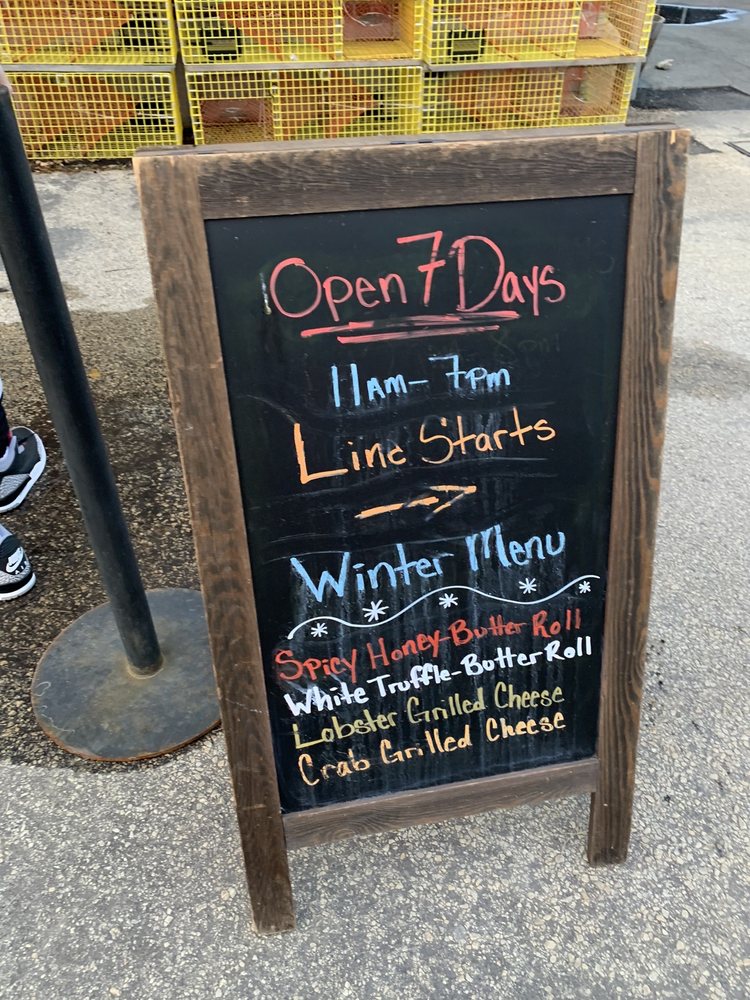 Open 7 Days
11AM - 7pm
Line Starts
Winter Menu
Spicy Honey-Butter Roll
White Truffle-Butter Roll
Lobster Grilled Cheese
Crab Grilled Cheese